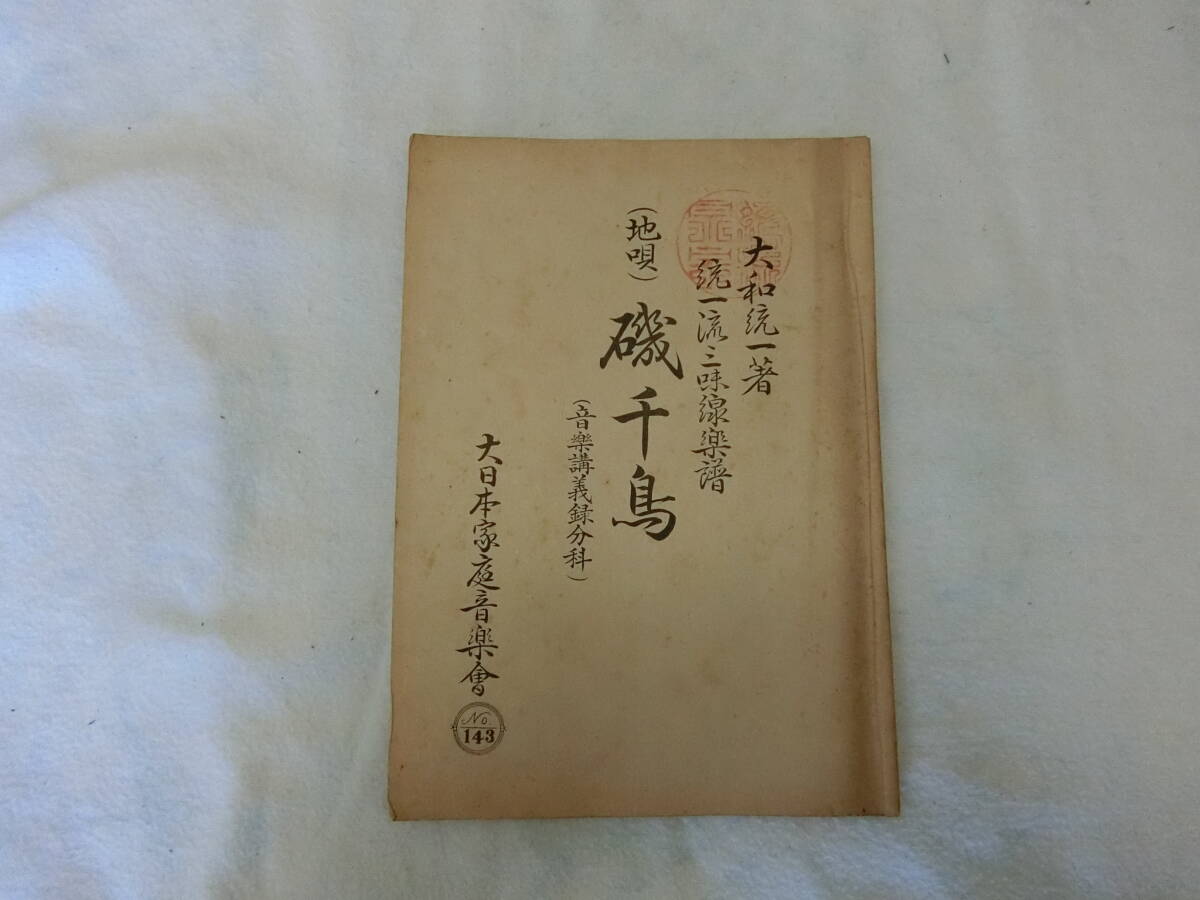 大和統一著
統一流三味線楽譜
(地唄) 磯千鳥
(音樂講義録分科)
大日本家庭音樂會
No
143